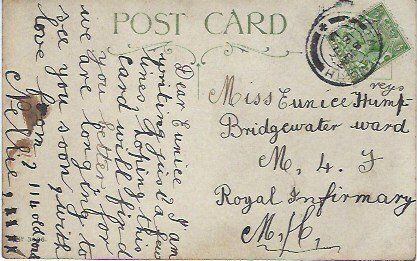 POST CARD
Dear Eunice I am
writing just a few
lines hoping this
card will find
you better, for
we are longing to
see you soon, with
love from
Nellie, xxxx
Miss Eunice Hump
reys
Bridgewater ward
M. 4. F
Royal Infirmary
M/C,